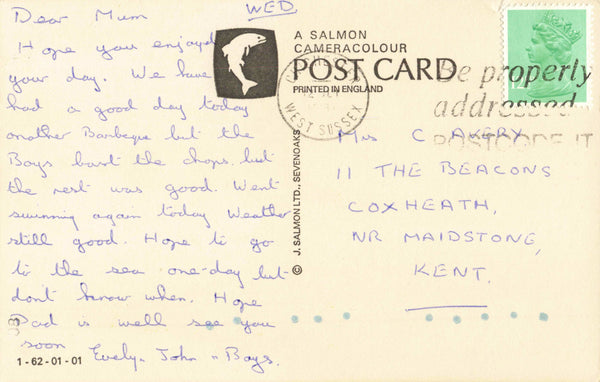 Dear Mum WED
Hope you enjoyed
your day. We have
had a good day today
another Barbeque but the
Boys burst the chops but
the rest was good. Went
swimming again today Weather
still good. Hope to go
to the sea one-day but
don't know when. Hope
Dad is well see you
soon Evelyn John " Boys.
1-62-01-01
A SALMON
CAMERACOLOUR
POST CARD
PRINTED IN ENGLAND
© J. SALMON LTD., SEVENOAKS
WEST SUSSEX
Be properly
addressed
POSTCODE IT
12
Mrs C AVERY
11 THE BEACONS
COXHEATH,
NR MAIDSTONE,
KENT.